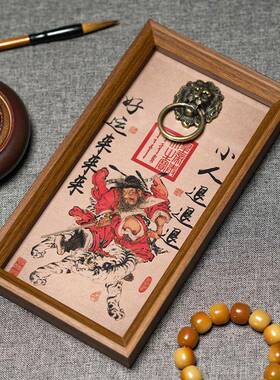 小人退退退
好运来来来